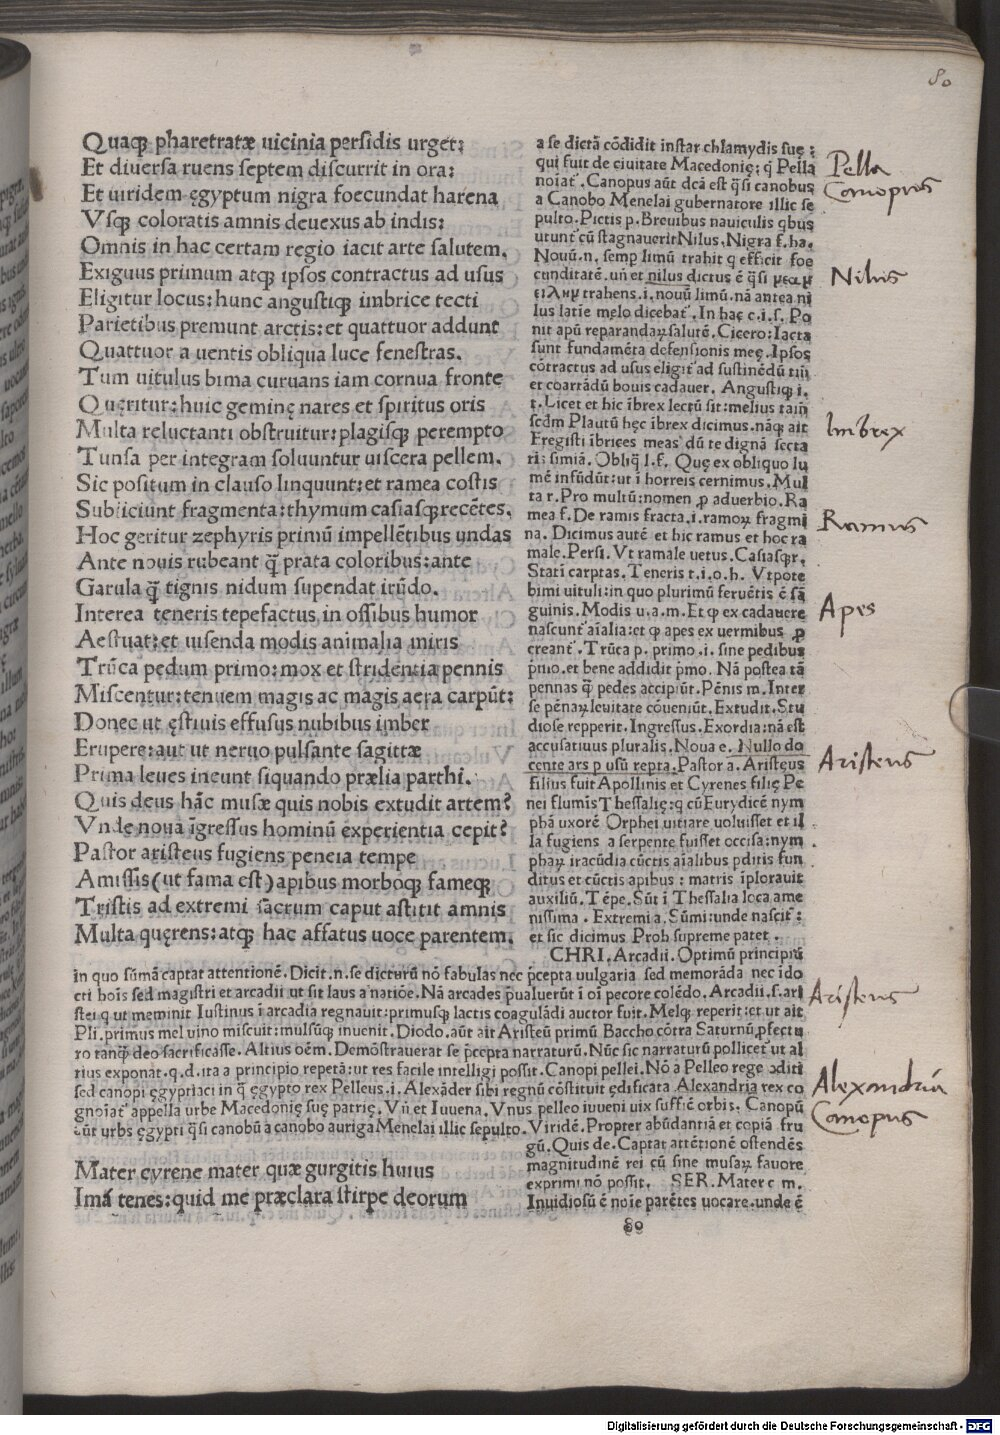 80
Quaqꝫ pharetratæ uicinia persidis urget:
Et diuersa ruens septem discurrit in ora:
Et uiridem ęgyptum nigra foecundat harena
Vsqꝫ coloratis amnis deuexus ab indis:
Omnis in hac certam regio iacit arte salutem.
Exiguus primum atqꝫ ipsos contractus ad usus
Eligitur locus: hunc angustiqꝫ imbrice tecti
Parietibus premunt arctis: et quattuor addunt
Quattuor a uentis obliqua luce fenestras.
Tum uitulus bima curuans iam cornua fronte
Quęritur: huic geminę nares et spiritus oris
Multa reluctanti obstruitur: plagisqꝫ perempto
Tunsa per integram soluuntur uiscera pellem.
Sic positum in clauso linquunt: et ramea costis
Subiiciunt fragmenta: thymum casiasqꝫ recētes.
Hoc geritur zephyris primū impellētibus undas
Ante nouis rubeant q̄ꝫ prata coloribus: ante
Garula q̄ꝫ tignis nidum supendat irūdo.
Interea teneris tepefactus in ossibus humor
Aestuat: et uisenda modis animalia miris
Trūca pedum primo: mox et stridentia pennis
Miscentur: tenuem magis ac magis aera carpūt:
Donec ut ęstiuis effusus nubibus imber
Erupere: aut ut neruo pulsante sagittæ
Prima leues ineunt siquando prælia parthi.
Quis deus hāc musæ quis nobis extudit artem?
Vnde noua īgressus hominū experientia cepit?
Pastor aristeus fugiens peneia tempe
Amissis (ut fama est) apibus morboqꝫ fameqꝫ
Tristis ad extremi sacrum caput astitit amnis
Multa quęrens: atqꝫ hac affatus uoce parentem.
a se dictā cōdidit instar chlamydis suę:
qui fuit de ciuitate Macedonię: q̄ Pella
noīat̄. Canopus aūt dcā est q̄si canobus
a Canobo Menelai gubernatore illic se
pulto. Pictis p. Breuibus nauiculis qbus
utunt̄ cū stagnauerit Nilus. Nigra f. ha.
Nouū. n. semp limū trahit q efficit foe
cunditatē. uń et nilus dictus ē q̄si νεαν
ειλην trahens .i. nouū limū. nā antea ni
lus latie melo dicebat̄. In hac c. i. s. Po
nit apū reparandaꝝ salutē. Cicero: Iacta
sunt fundamēta defensionis meę. Ipsos
cōtractus ad usus eligit̄ ad sustinēdū tm̄
et coarrādū bouis cadauer. Angustiqꝫ i.
t. Licet et hic ībrex lectū sit: melius tam̄
scdm̄ Plautū hęc ībrex dicimus. nāqꝫ ait
Fregisti ībrices meas dū te dignā secta
ri: simiā. Obliq̄ l. f. Quę ex obliquo lu
mē infūdūt: ut ī horreis cernimus. Mul
ta r. Pro multū: nomen ꝓ aduerbio. Ra
mea f. De ramis fracta .i. ramoꝝ fragmī
na. Dicimus autē et hic ramus et hoc ra
male. Persi. Vt ramale uetus. Casiasqꝫ r.
Statī carptas. Teneris t. i. o. h. Vtpote
bimi uituli: in quo plurimū feruētis ē sā
guinis. Modis u. a. m. Et ꝙ ex cadauere
nascunt̄ aīalia: et ꝙ apes ex uermibus ꝓ
creant̄. Trūca p. primo .i. sine pedibus
p̄mo. et bene addidit p̄mo. Nā postea tā
pennas q̄ꝫ pedes accipiūt. Pēnis m. Inter
se pēnaꝝ leuitate cōueniūt. Extudit. Stu
diose repperit. Ingressus. Exordia: nā est
accusatiuus pluralis. Noua e. Nullo do
cente ars p usū repta. Pastor a. Aristęus
filius fuit Apollinis et Cyrenes filię Pe
nei fluminis Thessalię: q cū Eurydicē nym
phā uxorē Orphei uitiare uoluisset et il
la fugiens a serpente fuisset occisa: nym
phaꝝ iracūdia cūctis aīalibus pditis fun
ditus et cūctis apibus: matris īplorauit
auxiliū. Tēpe. Sūt ī Thessalia loca ame
nissima. Extremi a. Sūmi: unde nascit̄:
et sic dicimus Proh supreme pater.
CHRI. Arcadii. Optimū principiū
in quo sūmā captat attentionē. Dicit. n. se dicturū nō fabulas nec p̄cepta uulgaria sed memorāda nec ido
cti hoīs sed magistri et arcadii ut sit laus a natiōe. Nā arcades p̄ualuerūt ī oī pecore colēdo. Arcadii. s. ari
stei q ut meminit Iustinus ī arcadia regnauit: primusqꝫ lactis coagulādi auctor fuit. Melqꝫ reperit: et ut ait
Pli. primus mel uino miscuit: mulsūqꝫ inuenit. Diodo. aūt ait Aristeū primū Baccho cōtra Saturnū ꝓfectu
ro tanqꝫ deo sacrificasse. Altius oēm. Demōstrauerat se p̄cepta narraturū. Nūc sic narraturū pollicet̄ ut al
tius exponat. q. d. ita a principio repetā: ut res facile intelligi possit. Canopi pellei. Nō a Pelleo rege ↄditi
sed canopi ęgyptiaci in q̄ ęgypto rex Pelleus .i. Alexāder sibi regnū cōstituit ędificata Alexandria rex co
gnoīat̄ appella urbe Macedonię suę patrię. Vń et Iuuena. Vnus pelleo iuueni uix suffiē orbis. Canopū
aūt urbs ęgypti q̄si canobū a canobo auriga Menelai illic sepulto. Viridē. Propter abūdantiā et copiā fru
gū. Quis de. Captat attētionē ostendēs
magnitudinē rei cū sine musaꝝ fauore
exprimi nō possit. SER. Mater c m.
Inuidiosū ē noīe parētes uocare. unde ē
Mater cyrene mater quæ gurgitis huius
Imā tenes: quid me præclara stirpe deorum
80
Pella
Canopus
Nilus
Imbrex
Ramus
Apes
Aristeus
Aristeus
Alexandria
Canopus
Digitalisierung gefördert durch die Deutsche Forschungsgemeinschaft - DFG